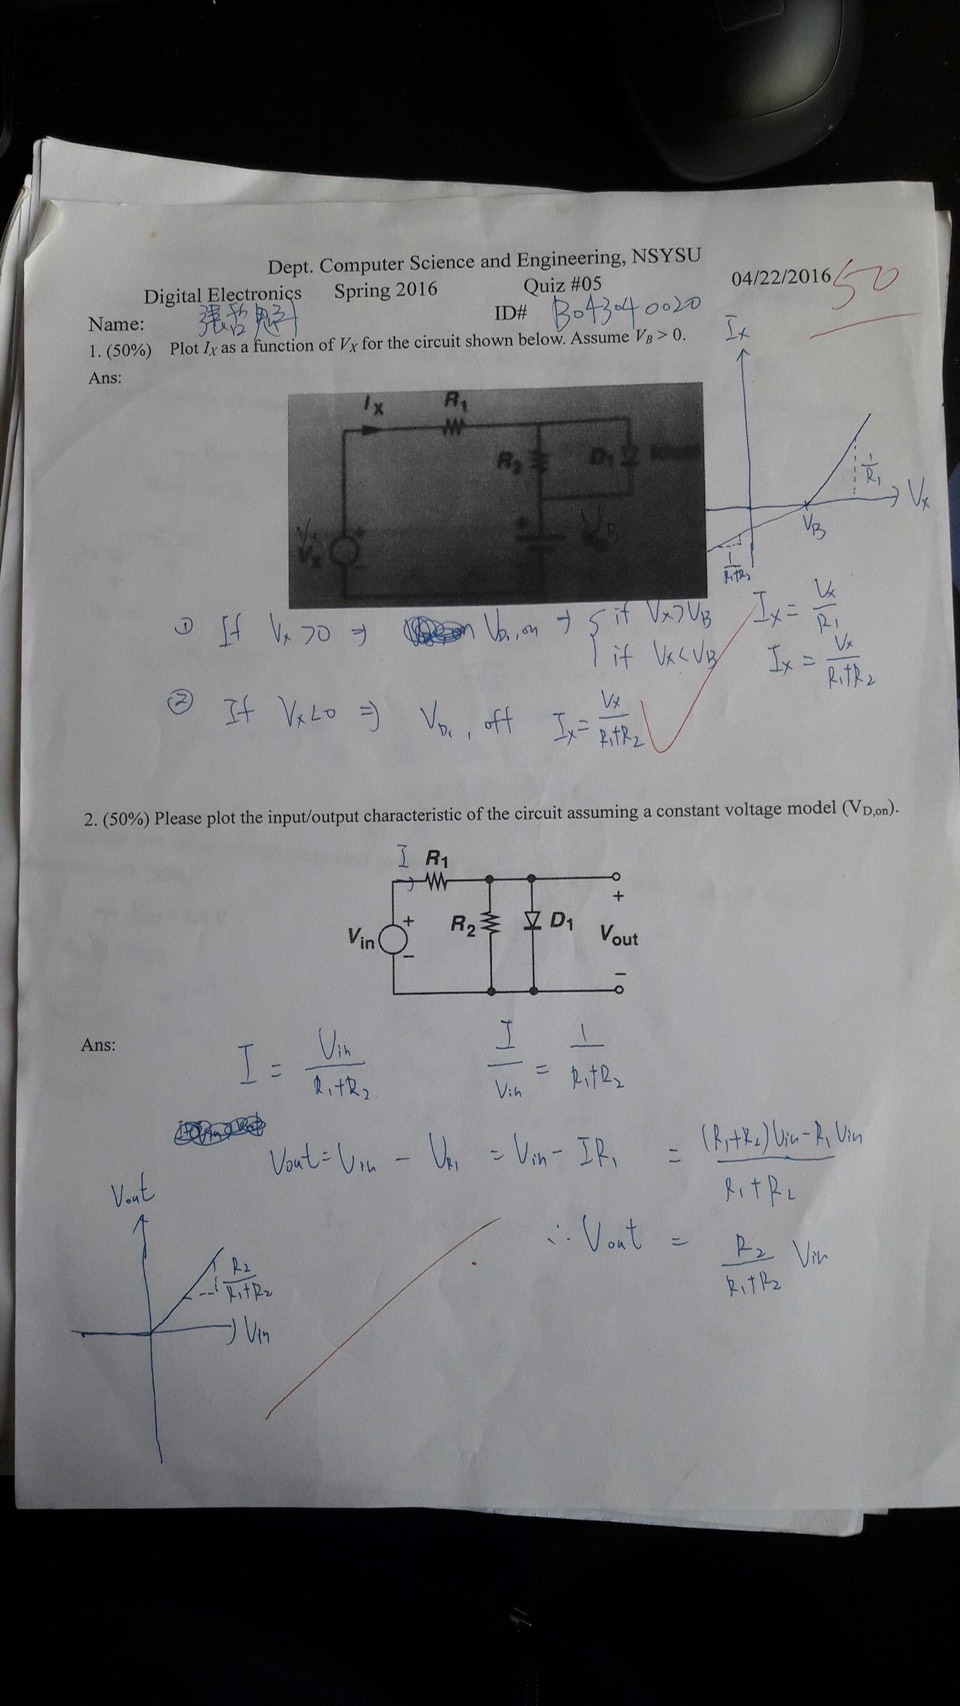 Dept. Computer Science and Engineering, NSYSU
Digital Electronics Spring 2016 Quiz #05 04/22/2016 50
Name: 張哲魁 ID# B043040020
1. (50%) Plot IX as a function of VX for the circuit shown below. Assume VB > 0.
Ans:
IX R1
R2 D1
VX VB
Ix
1/R1
Vx
VB
1/R1+R2
① If Vx>0 ⇒ VD1,on ⇒ { if Vx>VB Ix = Vx/R1
if Vx<VB Ix = Vx/R1+R2
② If Vx<0 ⇒ VD1, off Ix = Vx/R1+R2
2. (50%) Please plot the input/output characteristic of the circuit assuming a constant voltage model (VD,on).
I R1
+
Vin + − R2 D1 Vout
−
Ans:
I = Vin/R1+R2 I/Vin = 1/R1+R2
Vout = Vin − VR1 = Vin − IR1 = (R1+R2)Vin−R1Vin/R1+R2
∴ Vout = R2/R1+R2 Vin
Vout
R2/R1+R2
Vin